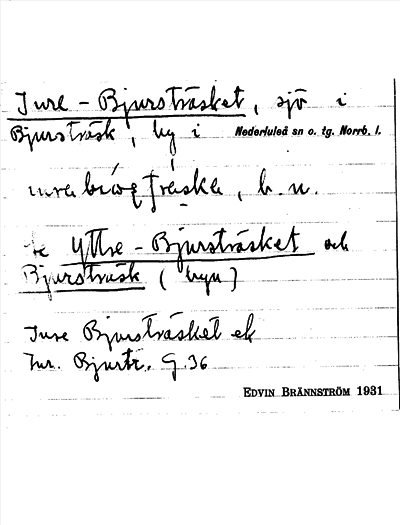 Inre - Bjursträsket, sjö i
Bjursträsk, by i Nederluleå sn o. tg. Norrb. l.
b. u.
Yttre - Bjursträsket och
Bjursträsk (byn)
Inre Bjursträsket ek
Inr. Bjurtr. G.36
EDVIN BRÄNNSTRÖM 1931